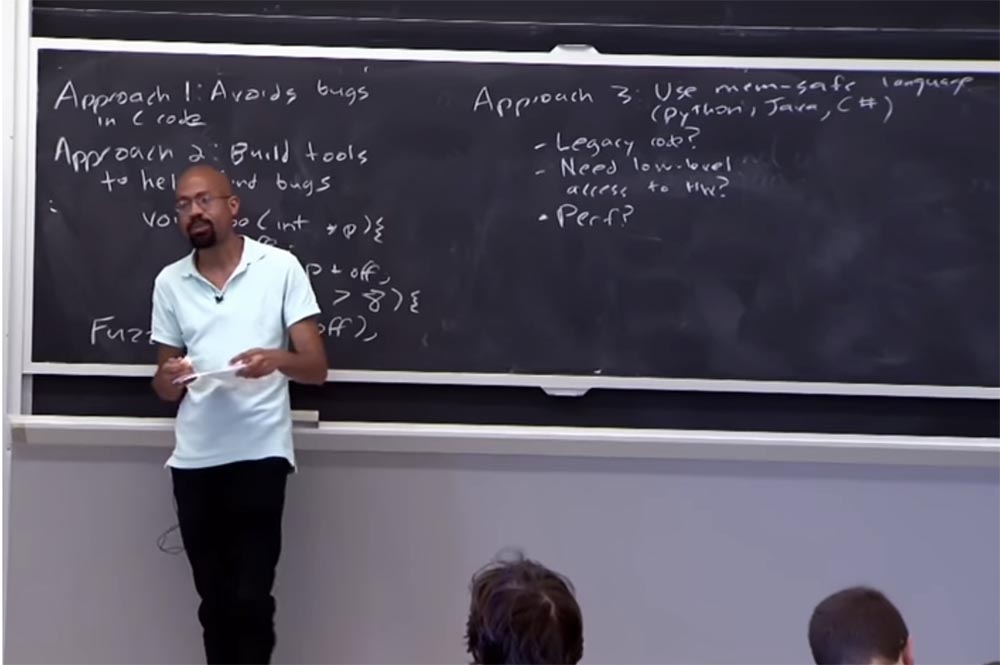 Approach 1: Avoids bugs
in C code
Approach 2: Build tools
to help find bugs
(int *p){
p + off;
> 8){
off);
Approach 3: Use mem-safe language
(Python, Java, C#)
- Legacy code?
- Need low-level
access to HW?
• Perf?